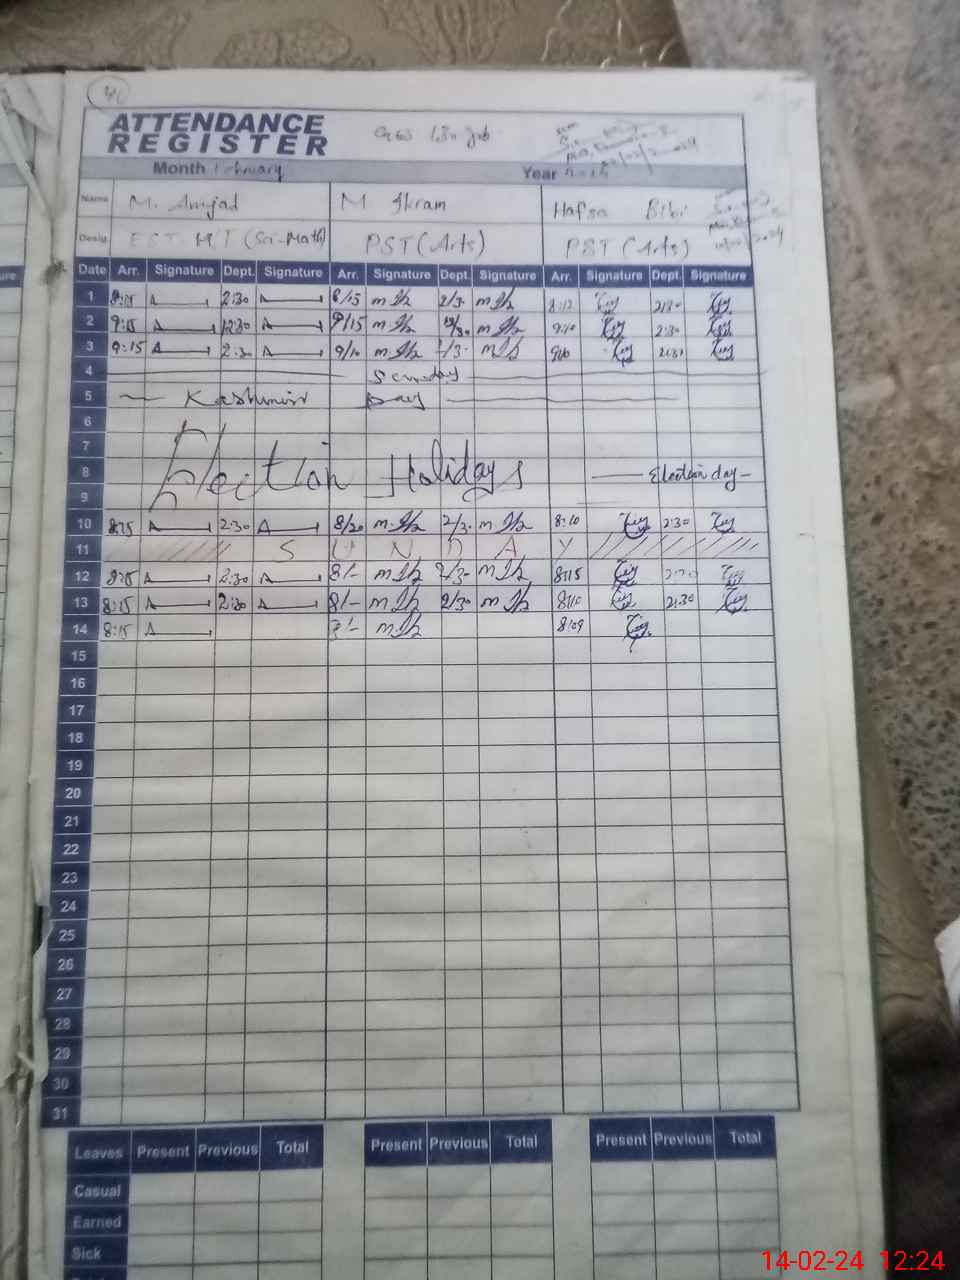 ATTENDANCE
REGISTER
Month February Year
Name M. Amjad M Ikram Hafsa Bibi
Desig. EST. M/T (Sci-Math) PST (Arts) PST (Arts)
Date Arr. Signature Dept. Signature Arr. Signature Dept. Signature Arr. Signature Dept. Signature
1 8:15 2:30 8/15 2/3- 8:12 2:30
2 9:15 12:30 9/15 12/30 9:10 2:30
3 9:15 2:30 9/10 2/3- 2:30
4 Sunday
5 Kashmir Day
6
7
8 Election Holidays Election day
9
10 8:15 2:30 8/20 2/3- 8:10 2:30
11 S U N D A Y
12 8:15 2:30 8/- 2/3- 8:15
13 8:15 2:30 8/- 2/30 8:10 2:30
14 8:15 8:09
15
16
17
18
19
20
21
22
23
24
25
26
27
28
29
30
31
Leaves Present Previous Total Present Previous Total Present Previous Total
Casual
Earned
Sick
14-02-24 12:24